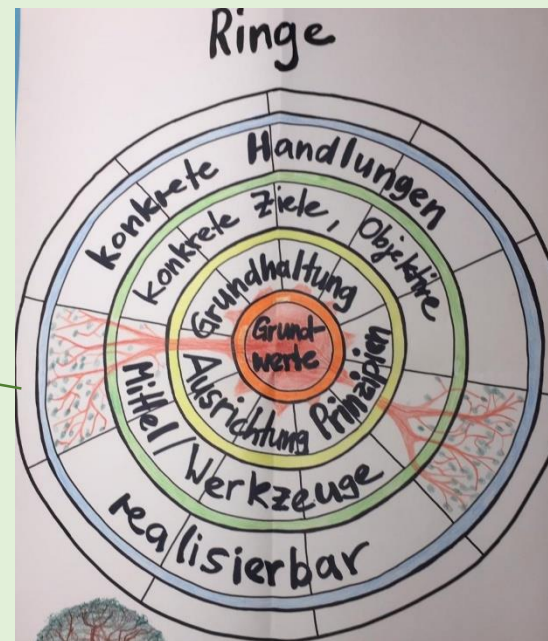 Ringe
konkrete Handlungen
konkrete Ziele, Objektive
Grundhaltung
Grund-
werte
Prinzipien
Ausrichtung
Mittel/Werkzeuge
realisierbar